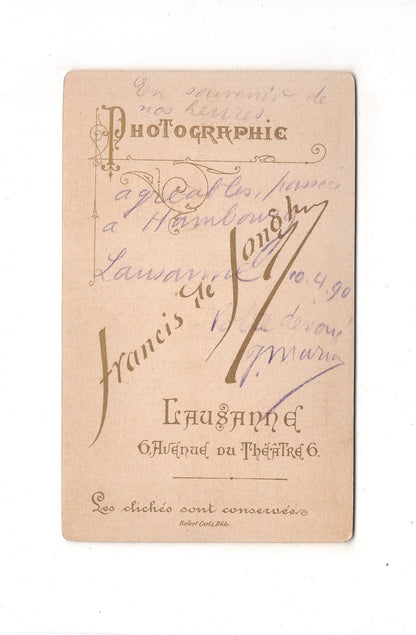 En souvenir de
nos heures
PHOTOGRAPHIE
agréables, passées
a Hambourg
Francis de Jongh
Lausanne 10.4.90
dévoué
LAUSANNE
6, AVENUE DU THÉÂTRE 6.
Les clichés sont conservés
Robert Carls, Bâle